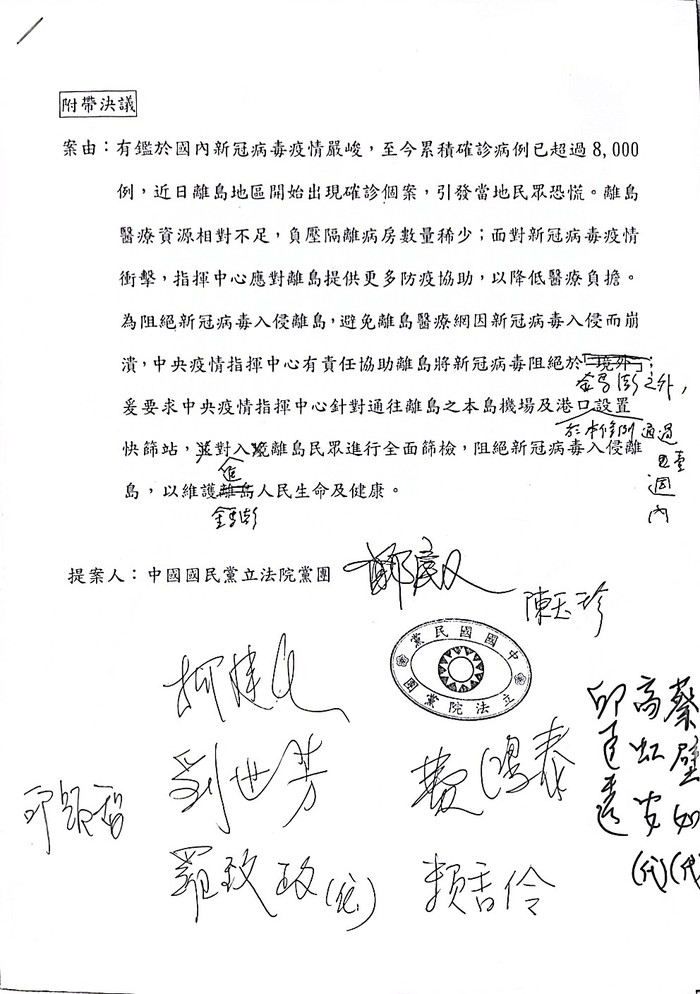 附帶決議
案由：有鑑於國內新冠病毒疫情嚴峻，至今累積確診病例已超過8,000
例，近日離島地區開始出現確診個案，引發當地民眾恐慌。離島
醫療資源相對不足，負壓隔離病房數量稀少；面對新冠病毒疫情
衝擊，指揮中心應對離島提供更多防疫協助，以降低醫療負擔。
為阻絕新冠病毒入侵離島，避免離島醫療網因新冠病毒入侵而崩
潰，中央疫情指揮中心有責任協助離島將新冠病毒阻絕於「境外」；
金馬澎之外，
爰要求中央疫情指揮中心針對通往離島之本島機場及港口設置
於本條例通過
快篩站，並對入境離島民眾進行全面篩檢，阻絕新冠病毒入侵離
進
島，以維護離島人民生命及健康。
週
內
金馬澎
提案人：中國國民黨立法院黨團
陳玉珍
中國國民黨
立法院黨團
柯建銘
劉世芳
費鴻泰
蔡壁如(代)
高虹安(代)
邱臣遠
邱顯智
羅致政(代)
賴香伶